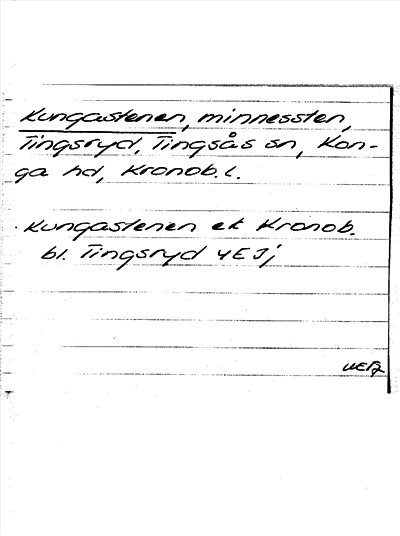 Kungastenen, minnessten,
Tingsryd, Tingsås sn, Kon-
ga hd, Kronob. l.
Kungastenen ek Kronob.
bl. Tingsryd 4E Jj